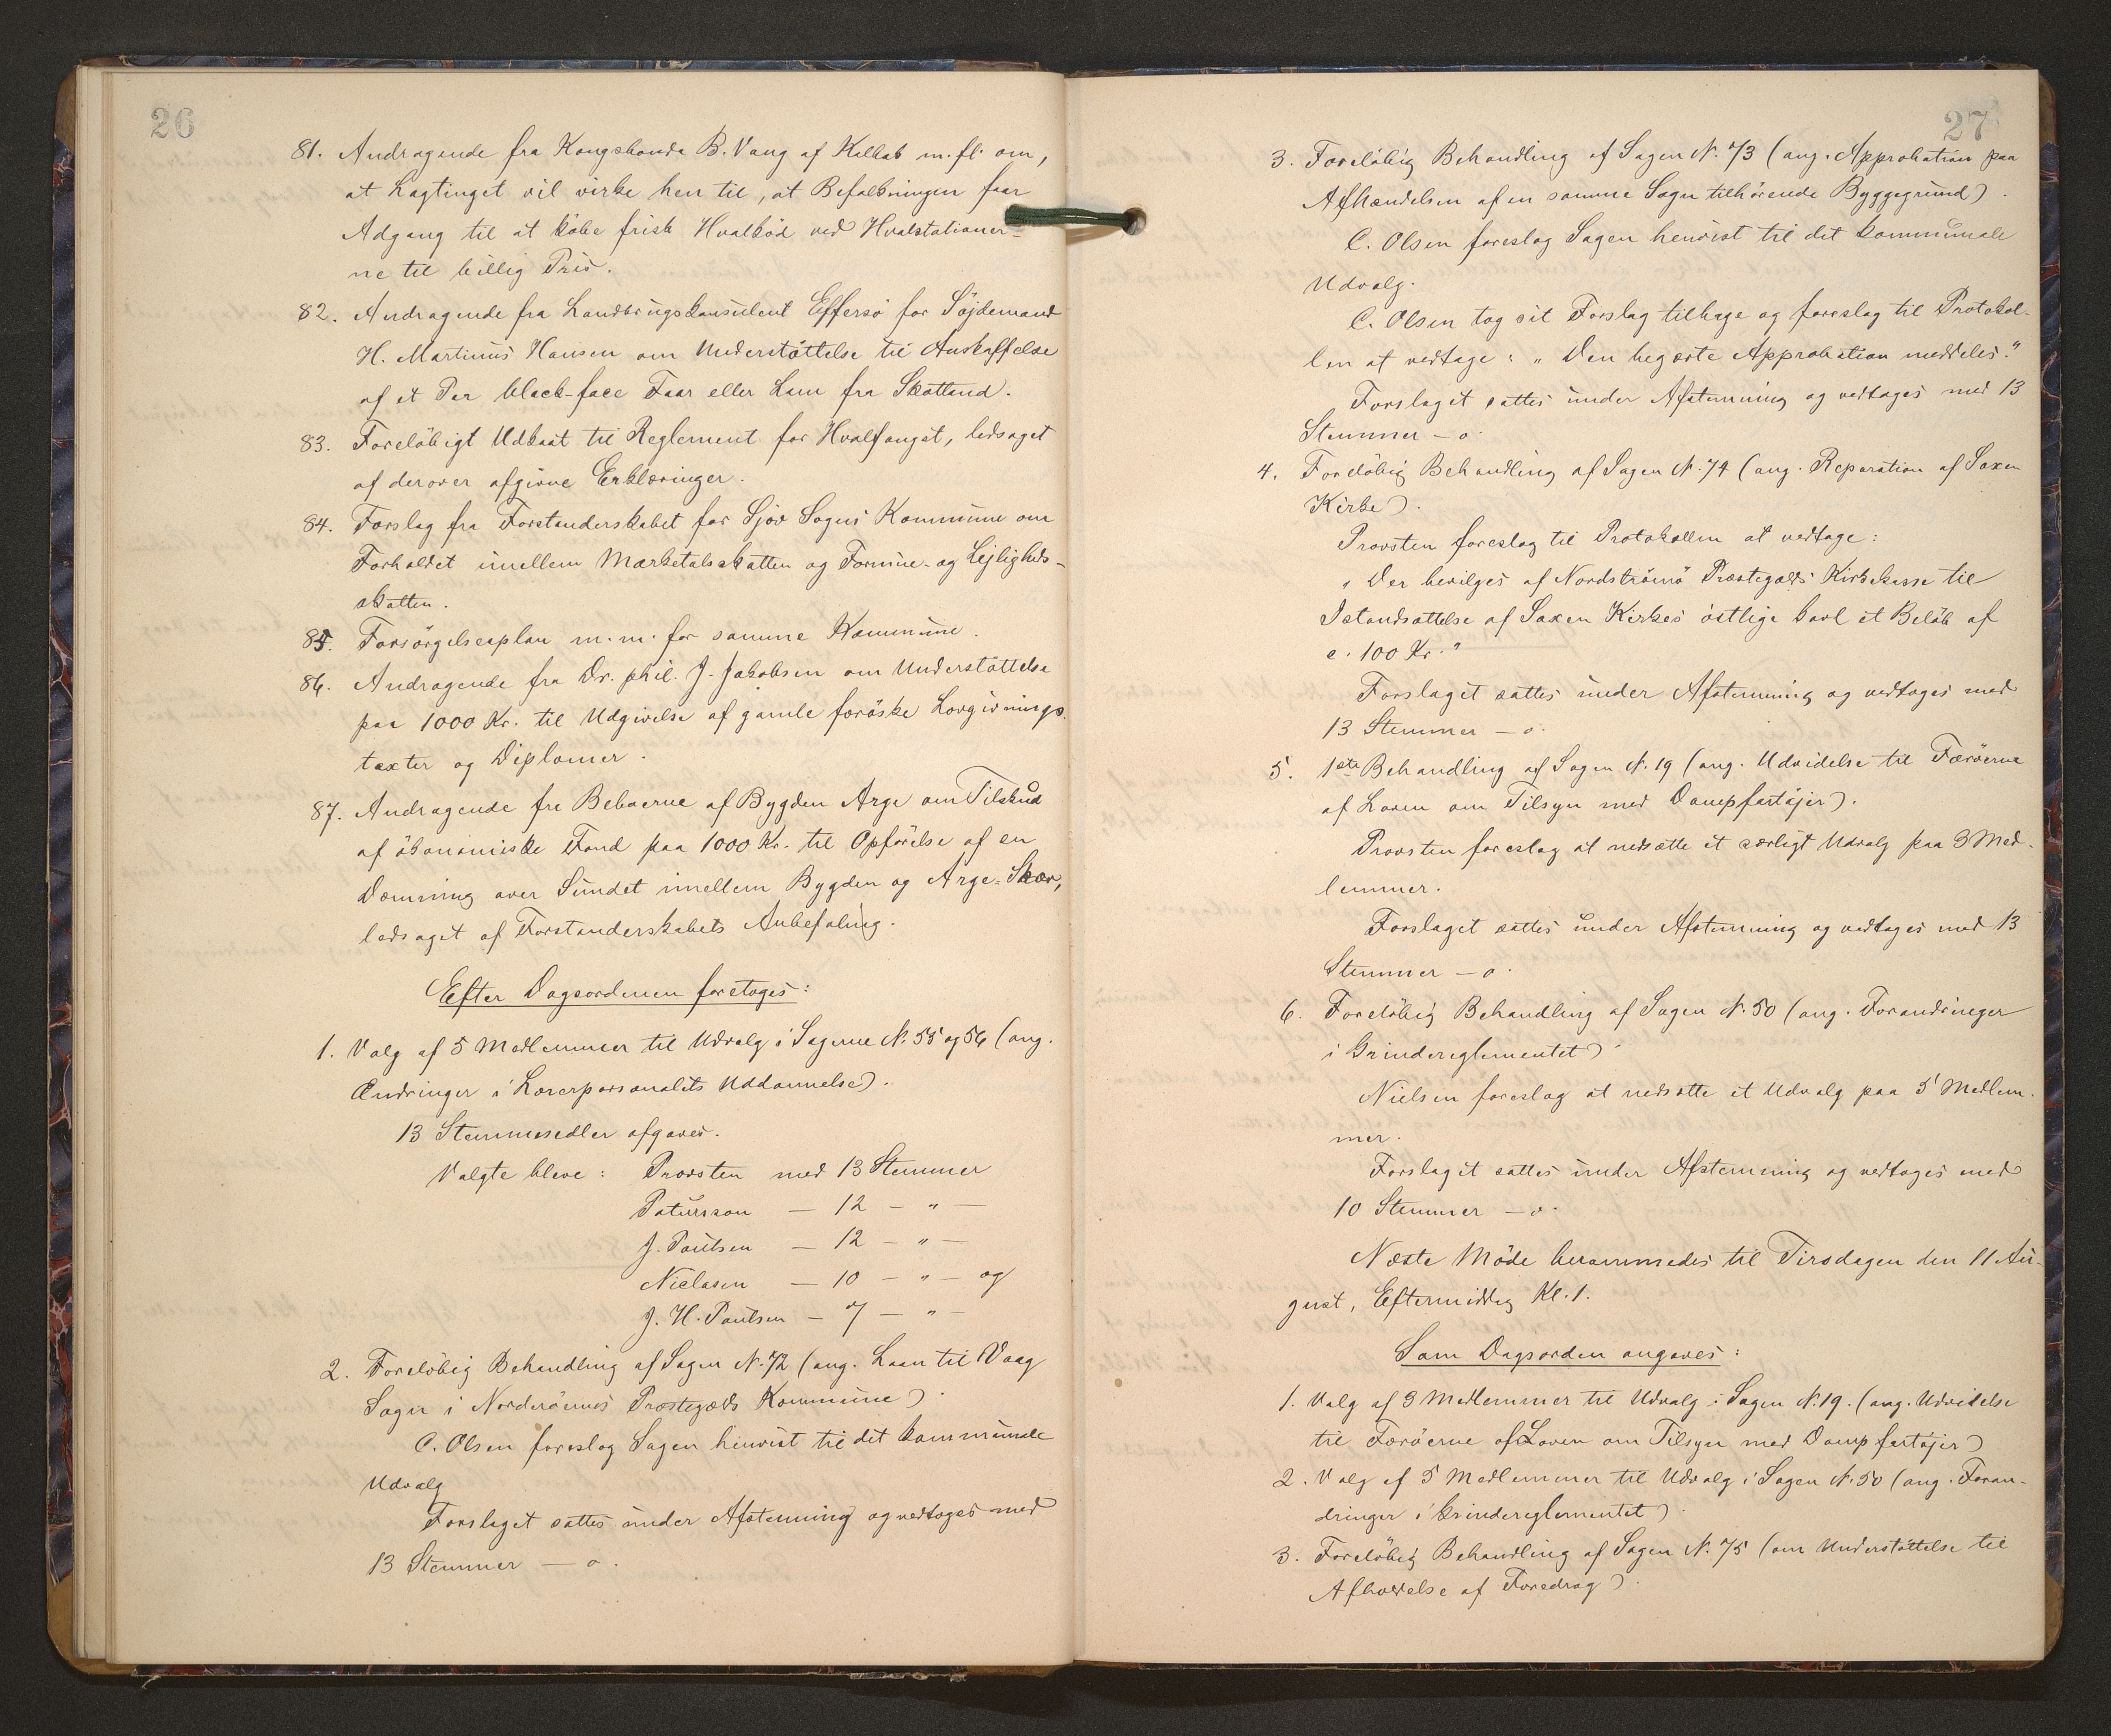 26
81. Andragende fra Kongsbonde B. Vang af Kalbak m. fl. om,
at Lagtinget vil virke hen til, at Befolkningen faar
Adgang til at købe frisk Hvalkød ved Hvalstationer-
ne til billig Pris.
82. Andragende fra Landbrugskonsulent Effersö for Töjdemand
H. Martinus Hansen om Understöttelse til Anskaffelse
af et Par black-face Faar eller Lam fra Skotland.
83. Forelöbigt Udkast til Reglement for Hvalfangst, ledsaget
af derover afgivne Erklæringer.
84. Forslag fra Forstanderskabet for Sjóv Sogns Kommune om
Forholdet imellem Marketalsskatten og Formue- og Lejligheds-
skatten.
85. Forsörgelsesplan m. m. for samme Kommune.
86. Andragende fra Dr. phil. J. Jakobsen om Understöttelse
paa 1000 Kr. til Udgivelse af gamle færöske Lovgivnings-
texter og Diplomer.
87. Andragende fra Beboerne af Bygden Arge om Tilskud
af ökonomiske Fond paa 1000 Kr. til Opförelse af en
Dæmning over Sundet imellem Bygden og Arge-Skær,
ledsaget af Forstanderskabets Anbefaling.
Efter Dagsordenen foretoges:
1. Valg af 5 Medlemmer til Udvalg i Sagerne N. 55 og 56 (ang.
Ændringer i Lærerpersonalets Uddannelse).
13 Stemmesedler afgaves.
Valgte bleve: Provsten med 13 Stemmer
Patursson — 12 — " —
J. Poulsen — 12 — " —
Nielsen — 10 — " — og
J. H. Poulsen — 7 — " —
2. Forelöbig Behandling af Sagen N. 72 (ang. Laan til Vaag
Sogn i Norderöernes Præstegælds Kommune).
C. Olsen foreslog Sagen henvist til det kommunale
Udvalg
Forslaget sattes under Afstemning og vedtoges med
13 Stemmer — o.
27
3. Forelöbig Behandling af Sagen N. 73 (ang. Approbation paa
Afhændelsen af en samme Sogn tilhörende Byggegrund).
C. Olsen foreslog Sagen henvist til det kommunale
Udvalg.
C. Olsen tog sit Forslag tilbage og foreslog til Protokol-
len at vedtage: "Den begærte Approbation meddeles."
Forslaget sattes under Afstemning og vedtoges med 13
Stemmer — o.
4. Forelöbig Behandling af Sagen N. 74 (ang. Reparation af Saxen
Kirke).
Provsten foreslog til Protokollen at vedtage:
"Der bevilges af Nordströmö Præstegælds Kirkekasse til
Istandsættelse af Saxen Kirkes östlige Gavl et Belöb af
c. 100 Kr."
Forslaget sattes under Afstemning og vedtoges med
13 Stemmer — o.
5. 1ste Behandling af Sagen N. 19 (ang. Udvidelse til Færöerne
af Loven om Tilsyn med Dampfartöjer).
Provsten foreslog at nedsætte et særligt Udvalg paa 3 Med-
lemmer.
Forslaget sattes under Afstemning og vedtoges med 13
Stemmer — o.
6. Forelöbig Behandling af Sagen N. 50 (ang. Forandringer
i Grindereglementet).
Nielsen foreslog at nedsætte et Udvalg paa 5 Medlem-
mer.
Forslaget sattes under Afstemning og vedtoges med
10 Stemmer — o.
Næste Möde berammedes til Tirsdagen den 11 Au-
gust, Eftermiddag Kl. 1.
Som Dagsorden angaves:
1. Valg af 3 Medlemmer til Udvalg i Sagen N. 19. (ang. Udvidelse
til Færöerne af Loven om Tilsyn med Dampfartöjer)
2. Valg af 5 Medlemmer til Udvalg i Sagen N. 50 (ang. Foran-
dringer i Grindereglementet).
3. Forelöbig Behandling af Sagen N. 75 (om Understöttelse til
Afholdelse af Foredrag).